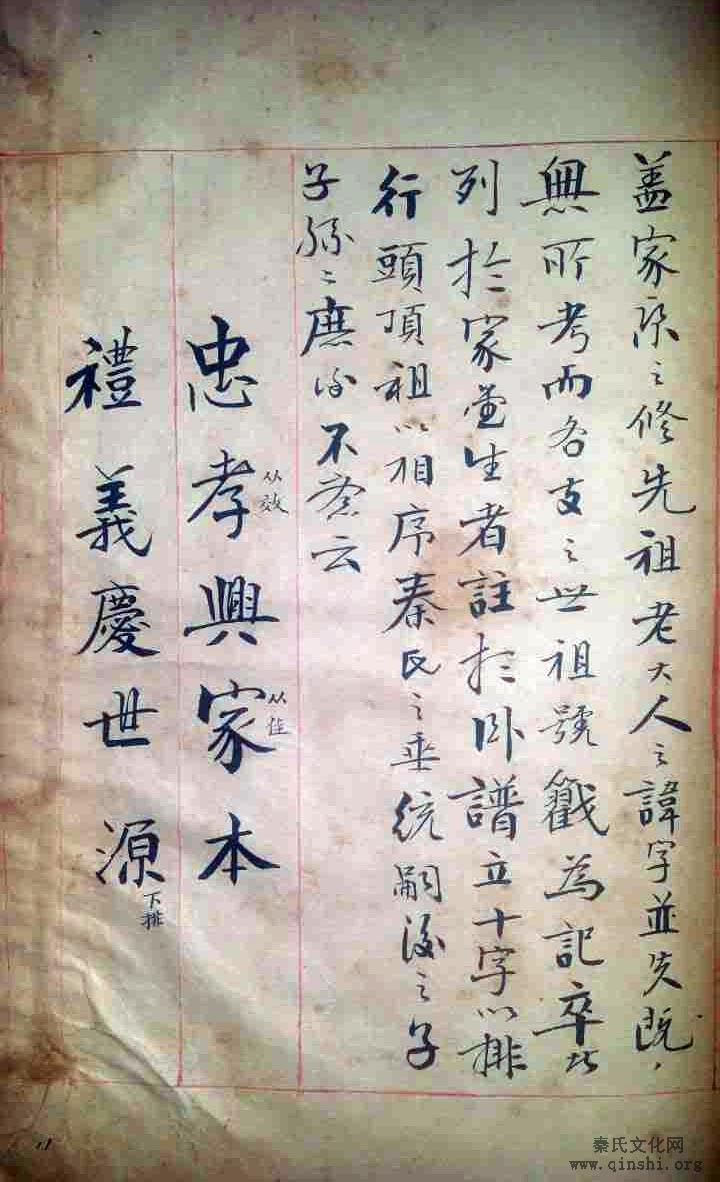 盖家原之修先祖老大人之諱字並失既
無所考而各支之世祖號戳為記卒者
列於家堂生者註於卧譜立十字以排
行頭頂祖以相序秦氏之垂統嗣後之子
子孫〻庶得不紊云
忠孝興家本
从效
从佳
禮義慶世源
下排
秦氏文化网
www.qinshi.org